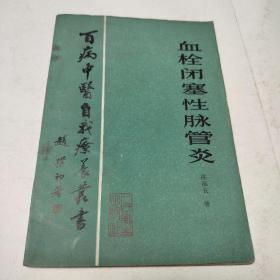 血栓闭塞性脉管炎
著
百病中醫自我療養叢書
趙樸初署